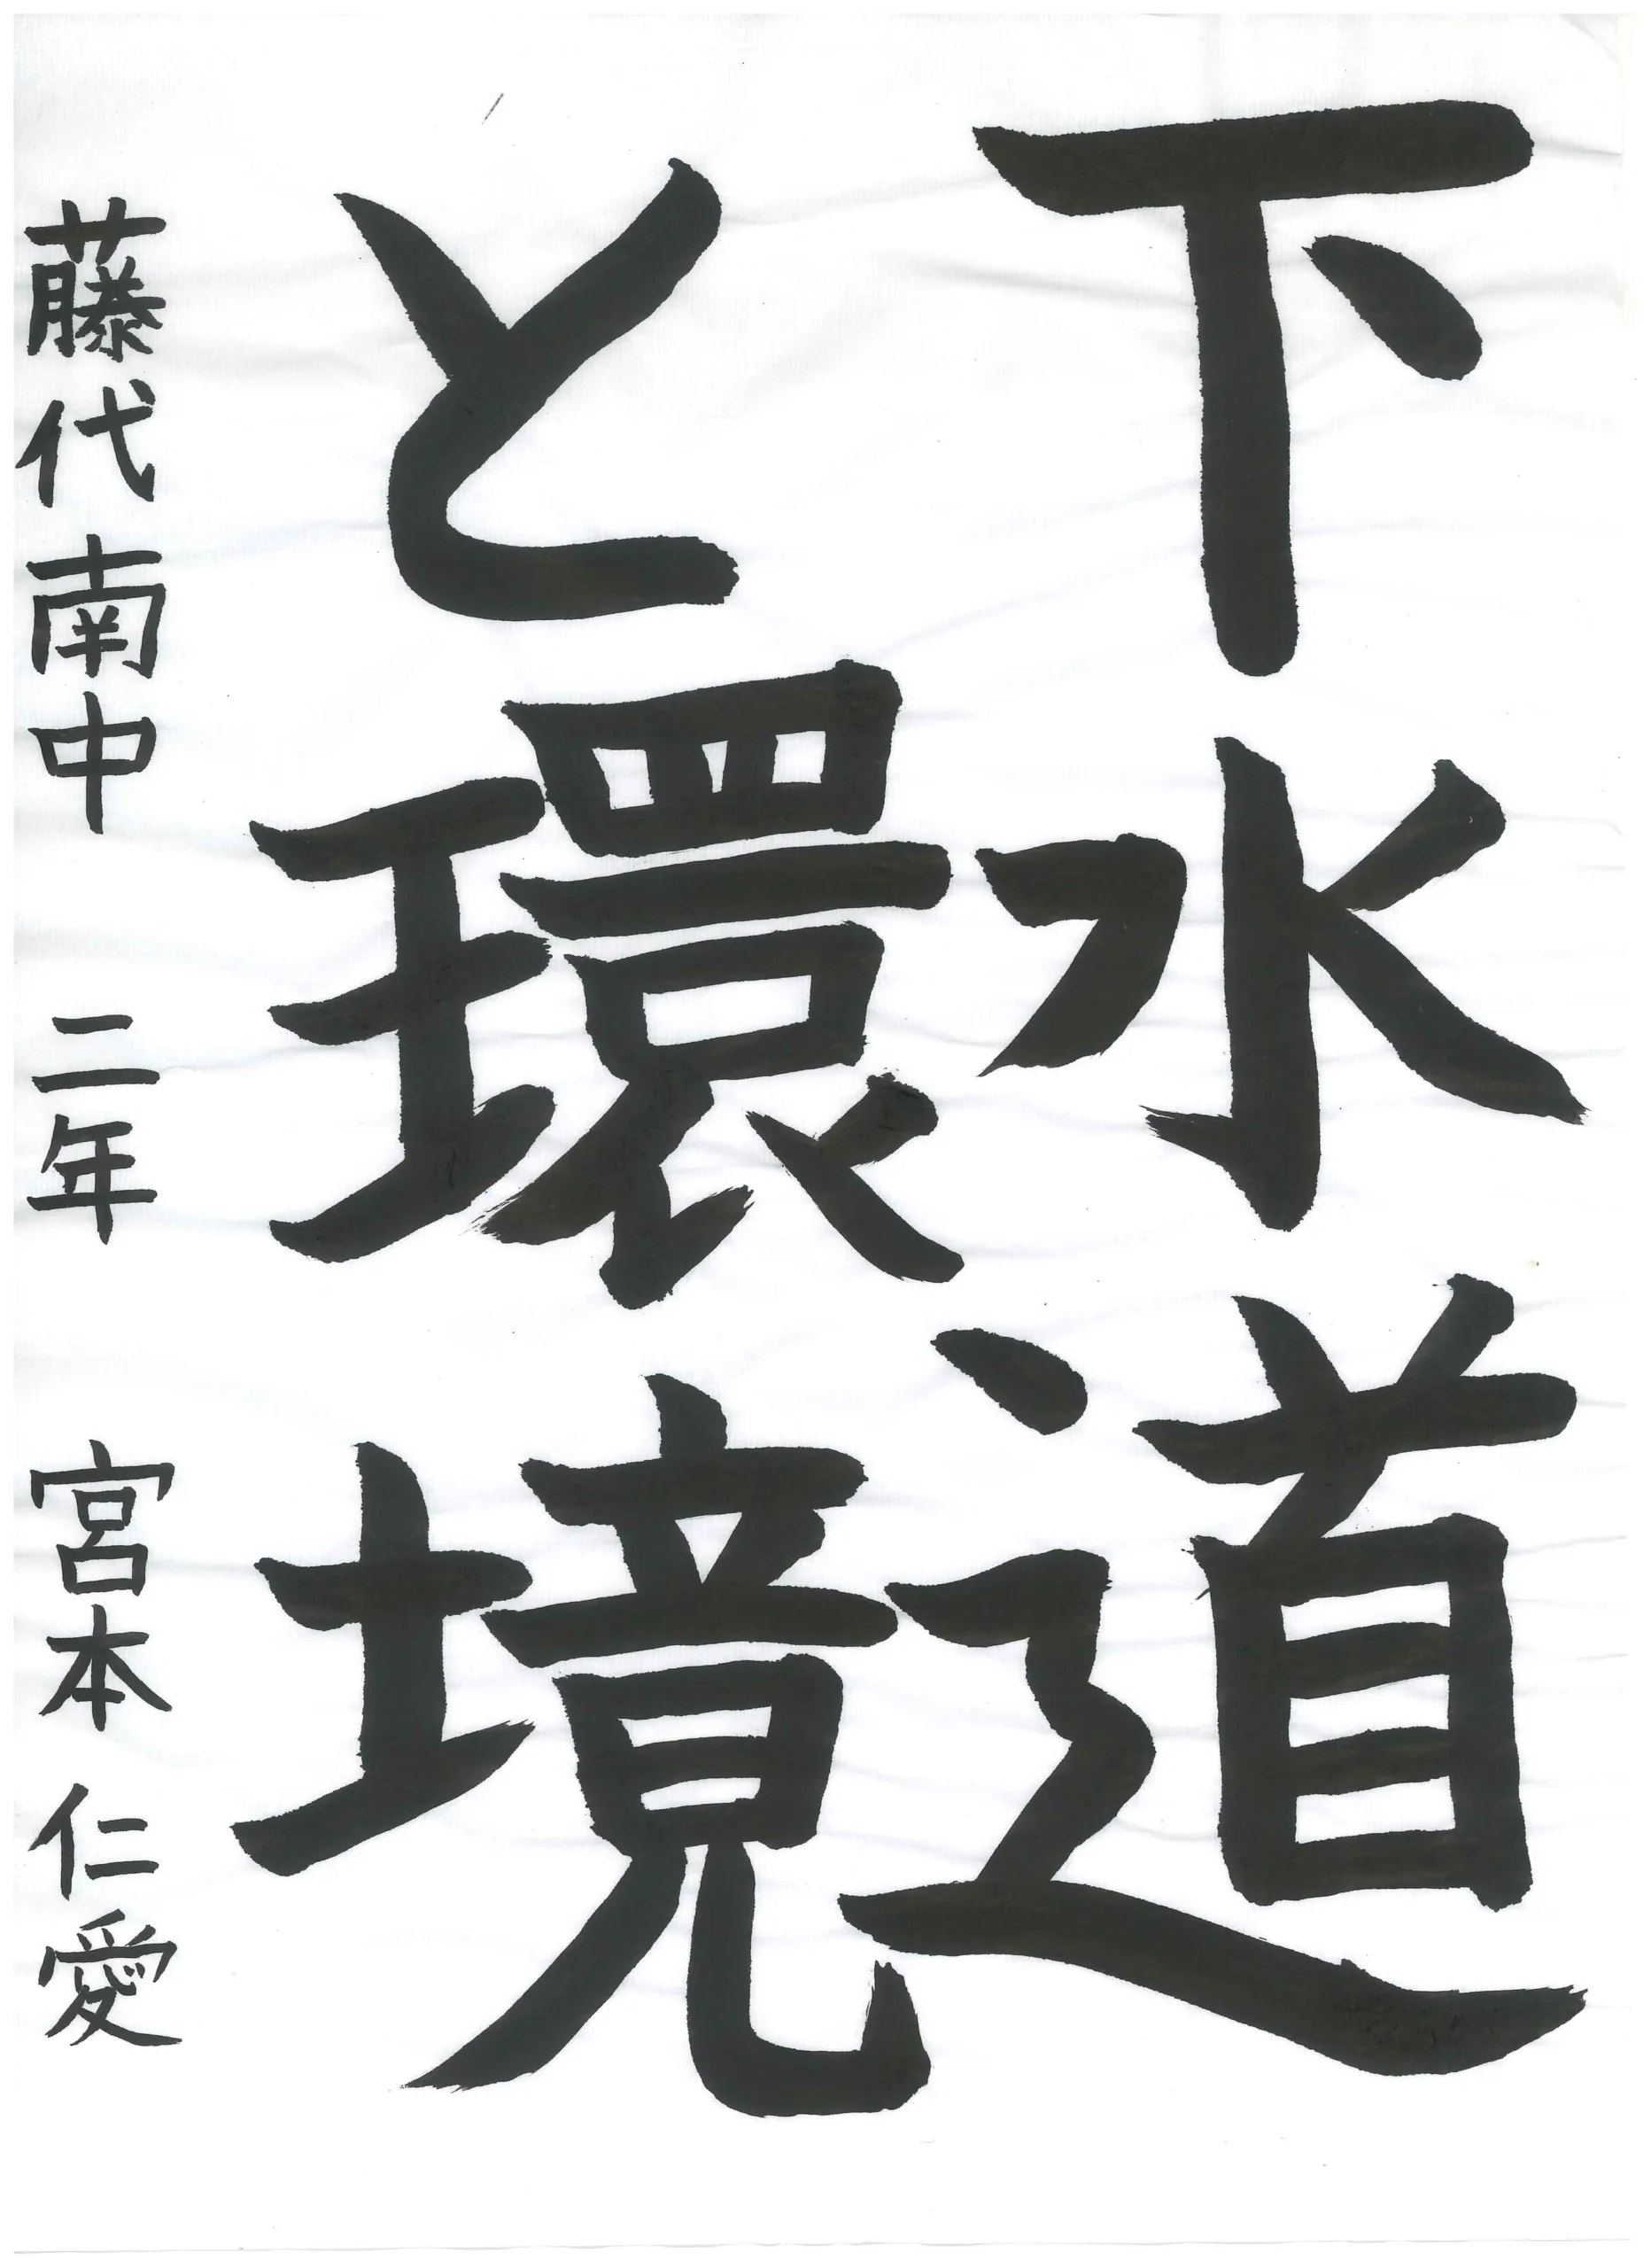 下水道
と環境
藤代南中 二年 宮本仁愛